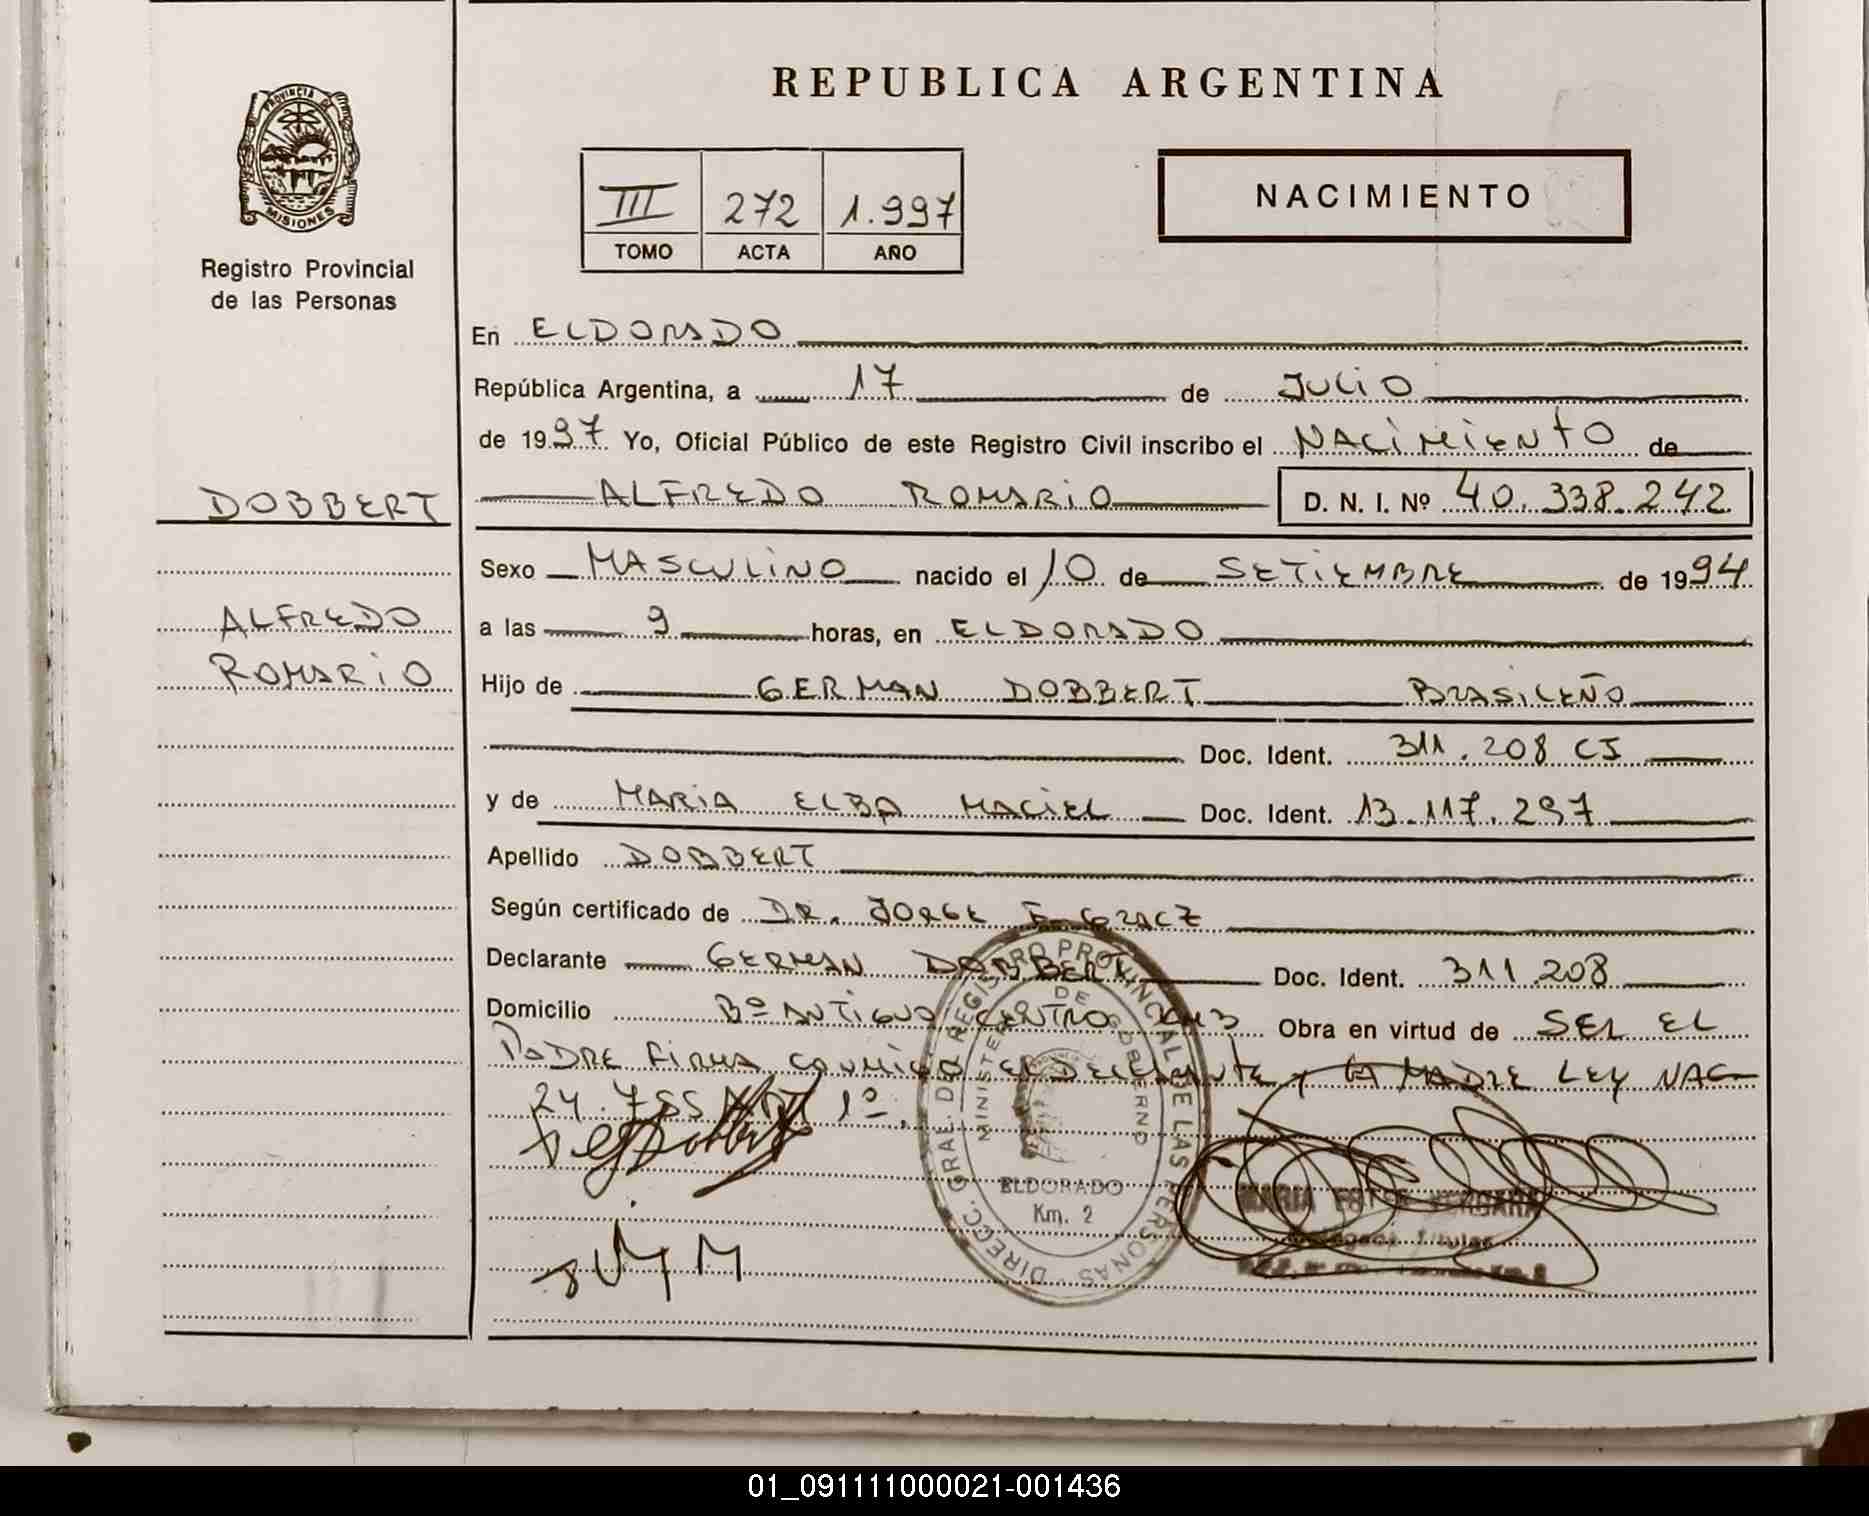 REPUBLICA ARGENTINA
PROVINCIA DE
MISIONES
Registro Provincial
de las Personas
III 272 1.997
TOMO ACTA AÑO
NACIMIENTO
En ELDORADO
República Argentina, a 17 de JULIO
de 1997 Yo, Oficial Público de este Registro Civil inscribo el NACIMIENTO de
DOBBERT
ALFREDO ROMARIO D. N. I. Nº 40.338.242
Sexo MASCULINO nacido el 10 de SETIEMBRE de 1994
ALFREDO
ROMARIO
a las 9 horas, en ELDORADO
Hijo de GERMAN DOBBERT BRASILEÑO
Doc. Ident. 311.208 CI
y de MARIA ELBA MACIEL Doc. Ident. 13.117.297
Apellido DOBBERT
Según certificado de DR. JORGE
Declarante GERMAN DOBBERT Doc. Ident. 311.208
Domicilio Bº ANTIGUO CENTRO KM3 Obra en virtud de SER EL
PADRE FIRMA CONMIGO EL DECLARANTE y LA MADRE LEY NAC
24.755 ART 1º.
DIRECC. GRAL. DEL REGISTRO PROVINCIAL DE LAS PERSONAS
MINISTERIO DE GOBIERNO
ELDORADO
Km. 2
MARIA ESTER VERGARA
Titular
01_091111000021-001436